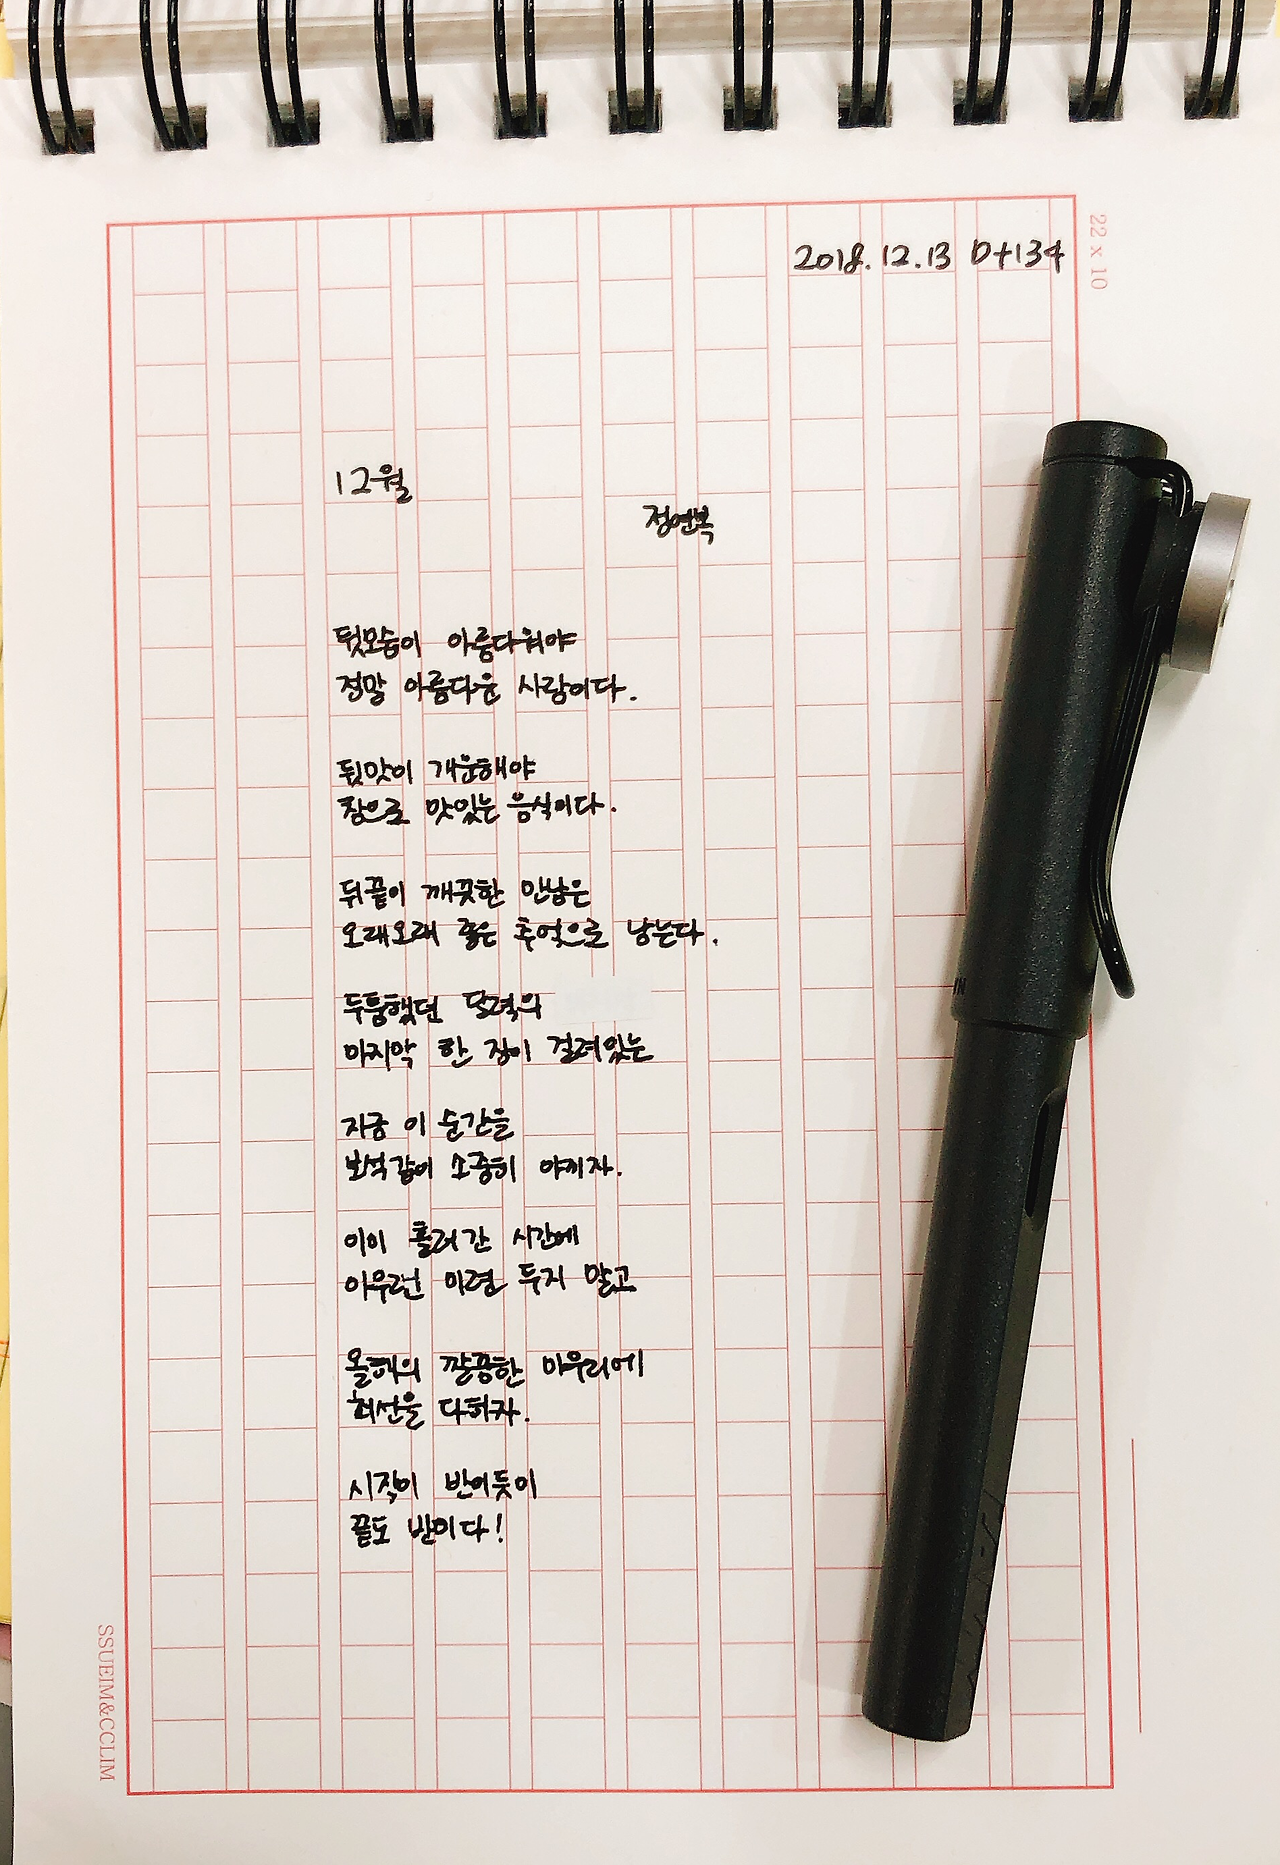 2018.12.13 D+134
22 x 10
12월
정연복
뒷모습이 아름다워야
정말 아름다운 사람이다.
뒷맛이 개운해야
참으로 맛있는 음식이다.
뒤끝이 깨끗한 만남은
오래오래 좋은 추억으로 남는다.
두툼했던 달력의
마지막 한 장이 걸려있는
지금 이 순간을
보석같이 소중히 아끼자.
이미 흘러간 시간에
아무런 미련 두지 말고
올해의 깔끔한 마무리에
최선을 다하자.
시작이 반이듯이
끝도 반이다!
SSUEIM&CCLIM
LAMY